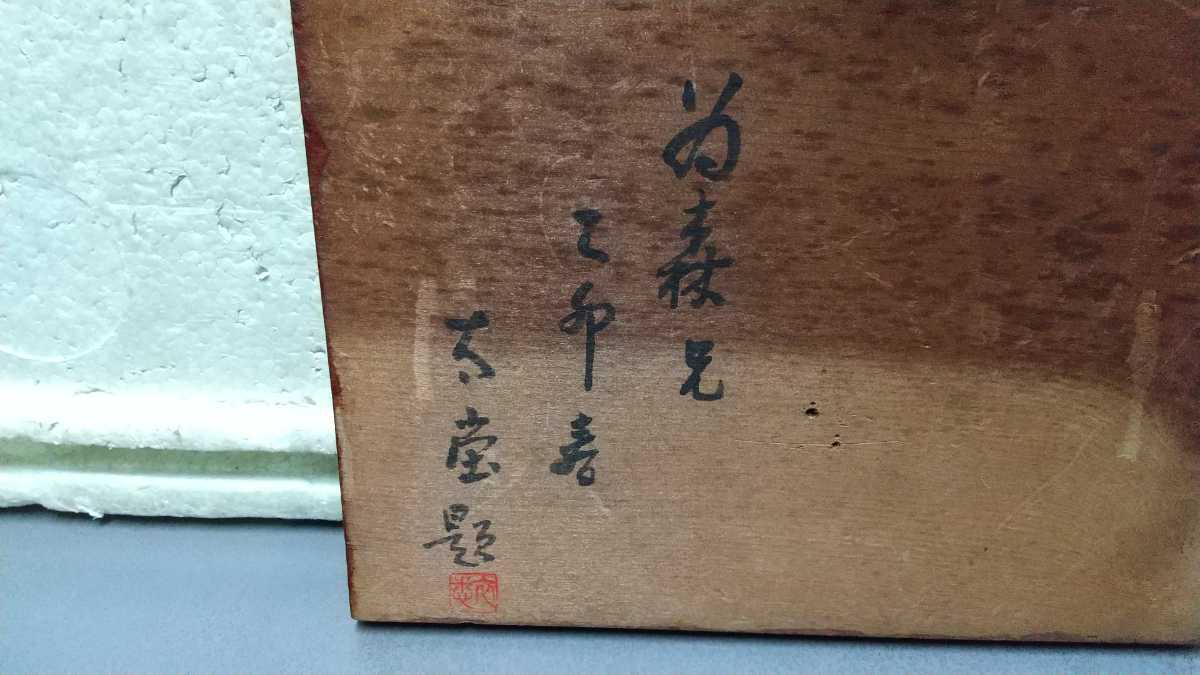 為森兄
乙卯春
堂題